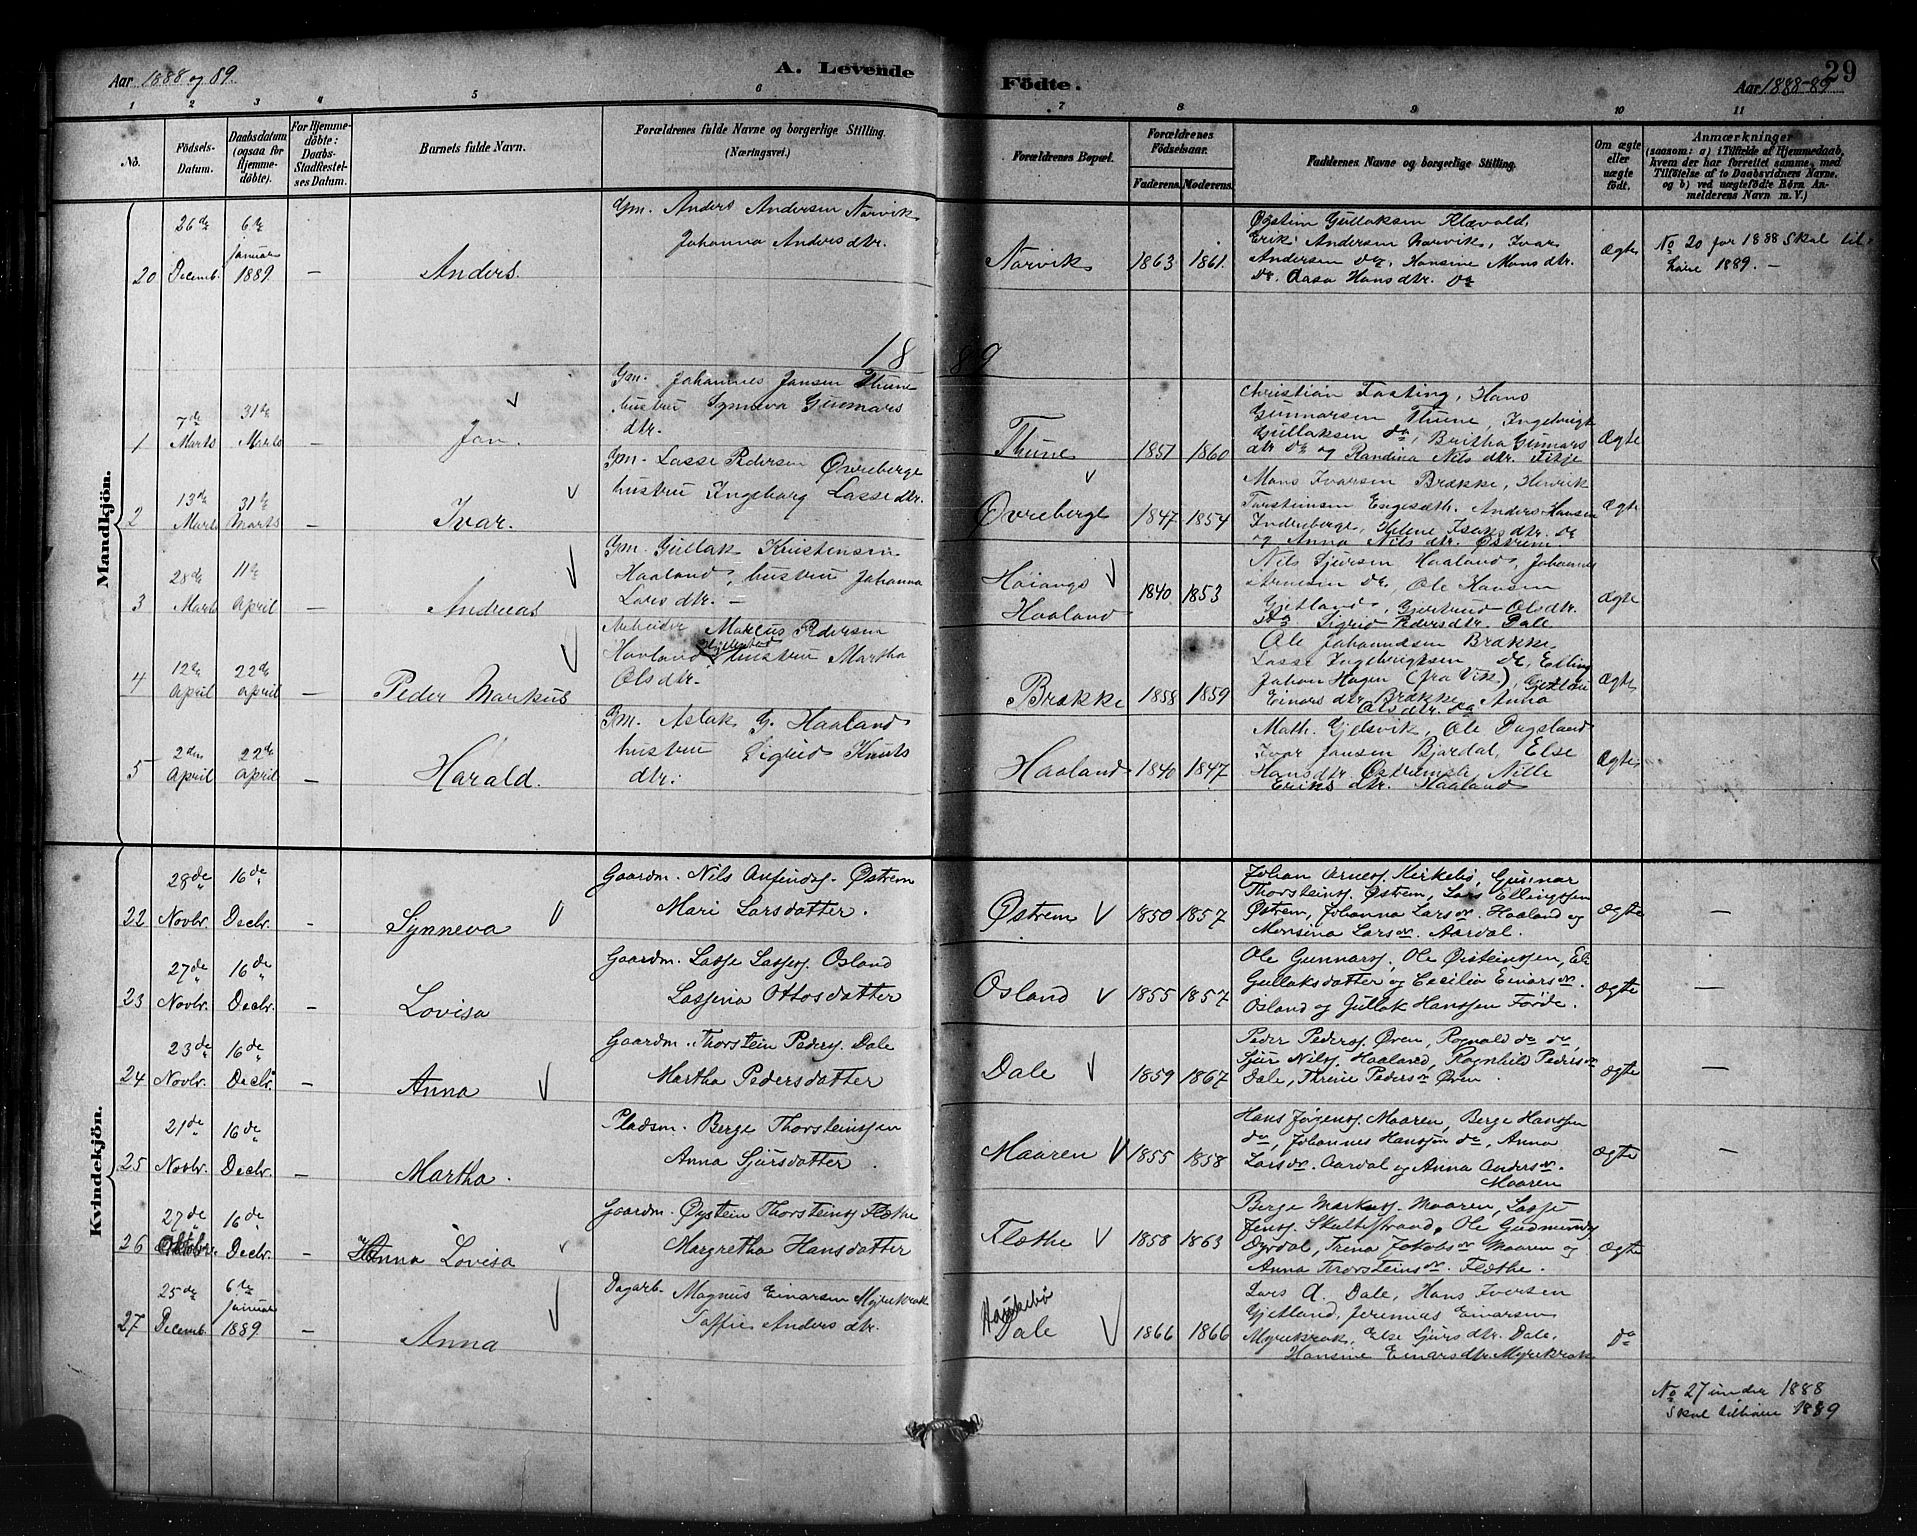 Aar 1888 og 89.
A. Levende
Födte.
Aar 1888-89
29
1 2 3 4 5 6 7 8 9 10 11
No.
Födsels-Datum.
Daabsdatum (ogsaa for Hjemme-döbte).
For Hjemme-döbte: Daabs-Stadfæstel-ses Datum.
Barnets fulde Navn.
Forældrenes fulde Navne og borgerlige Stilling.
(Næringsvei.)
Forældrenes Bopæl.
Forældrenes Födselsaar.
Faderens. Moderens.
Faddernes Navne og borgerlige Stilling.
Om ægte eller uægte födt.
Anmærkninger
(saasom: a) i Tilfælde af Hjemmedaab,
hvem der har forrettet samme, med
Tilföielse af to Daabsvidners Navne,
og b) ved uægtefödte Börn An-
melderens Navn m. V.)
Mandkjön.
20 26de Decemb. 6te januar 1889. — Anders.
Gm. Anders Andersen Narvik
Johanna Andersdtr.
Narvik 1863 1861.
Øystein Gullaksen Klævold,
Erik Andersen Narvik, Ivar
Andersen do, Hansine Monsdtr.
do. Aasa Hansdtr. do
Ægte
No 20 for 1888 skal til-
höre 1889. —
1889
1 7de Marts 31te Marts — Jan.
Gm. Johannes Jansen Thune
hustru Synneva Gunnars
dtr.
Thune 1851 1860
Christian Fasting, Hans
Gunnarsen Thune, Ingebrigt
Gullaksen do, Britha Gunnars
dtr do og Randina Nilsdtr.
Ægte
2 13de Marts 31te Marts — Ivar.
Gm. Lasse Pedersen Øvreberge
hustru Ingeborg Lassedtr.
Øvreberge 1847 1854
Mons Ivarsen Brække, Henrik
Torsteinsen Engesæth. Anders Hansen
Indreberge, Helene Isaksdtr. do
og Anna Nilsdtr. Østrem
Ægte
3 28de Marts 11te April — Andreas
Gm. Gullak Kristensen
Haaland, hustru Johanna
Larsdtr. —
Höiangs Haaland 1840 1853
Nils Sjursen Haaland, Johannes
Arnesen do, Ole Hansen
Gjetland, Gjertrud Olsdtr.
do Sigrid Pedersdtr. Dale
Ægte
4 12te April 22de April — Peder Markus
Arbeider Markus Pedersen
Hovland hustru Martha
Olsdtr.
Brække 1858 1859
Ole Johannesen Brække
Lasse Ingebrigtsen do, Elling
Johan Hagen (fra Vik),
Einarsdtr. Brække Anna
Olsdtr. do
Ægte
5 2den April 22de April — Harald.
Gm. Aslak G. Haaland
hustru Sigrid Knuts
dtr.
Haaland 1840 1847
Math. Gjelsvik, Ole Dagsland
Ivar Jansen Bjordal, Else
Hansdtr. Østrem, Nille
Eriksdtr. Haaland
Ægte.
Kvindekjön.
22 28de Novbr. 16de Decbr. — Synneva
Gaardm. Nils Anfinds. Østrem
Mari Larsdatter.
Østrem 1850 1857
Johan Arness. Kirkebö, Gunnar
Thorsteins. Østrem, Lars Ellingsen
Østrem, Johanna Larsdr. Haaland og
Monsina Larsdr. Aardal.
ægte —
23 27de Novbr. 16de Decbr. — Lovisa
Gaardm. Lasse Lasses. Osland
Lassina Ottosdatter
Osland 1855 1857
Ole Gunnars, Ole Øisteinssen, Eli
Gullaksdatter og Cecilia Einarsdr.
Osland og Gullak Hanssen Förde.
ægte —
24 23de Novbr. 16de Decbr. — Anna
Gaardm. Thorstein Peders. Dale
Martha Pedersdatter
Dale 1859 1867
Peder Peders. Øren, Rognald do do,
Sjur Nils. Haaland, Ragnhild Pedersdr
Dale, Thrine Pedersdr Øren.
ægte —
25 21de Novbr. 16de Decbr. — Martha.
Pladsm. Berge Thorsteinssen
Anna Sjursdatter.
Maaren 1855 1858
Hans Jørgens. Maaren, Berge Hanssen
do, Johannes Hanssen do, Anna
Larsdr. Aardal og Anna Andersdr
Maaren
ægte —
26 27de Oktobr. 16de Decbr. — Hanna Lovisa
Gaardm. Øystein Thorsteins. Fløthe
Margretha Hansdatter
Fløthe 1858 1863
Berge Markus. Maaren, Lasse
Jens. Skultestrand, Ole Gudmunds
Dyrdal, Trina Jakobsdr Maaren og
Anna Thorsteinsdr. Fløthe.
ægte
27 25de Decemb. 6te januar 1889. — Anna
Dagarb. Magnus Einarsen Myrekrok
Saffie Andersdtr.
Dale 1866 1866
Lars A. Dale, Hans Iversen
Gjetland, Jeremias Einarsen
Myrekrok, Else Sjursdtr. Dale.
Hansine Einarsdtr. Myrekrok
do
No 27 under 1888
skal tilhøre 1889